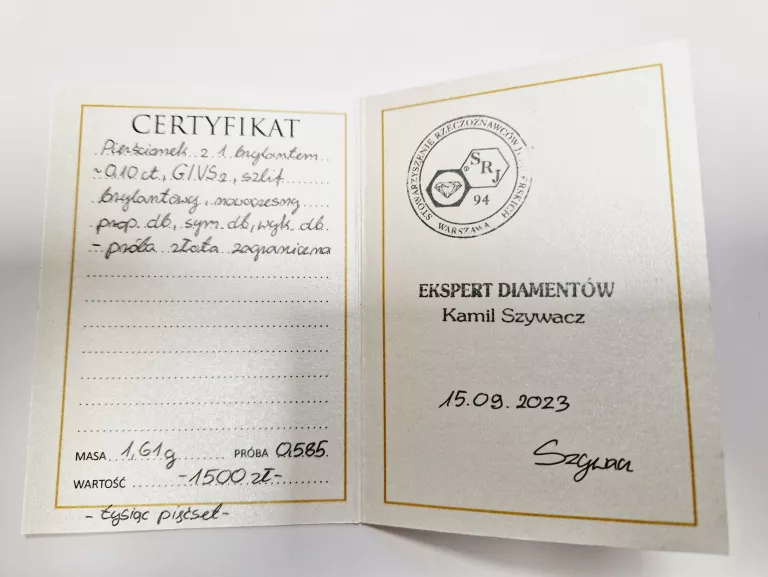 CERTYFIKAT
Pierścionek z 1 brylantem
~0.10 ct., G/VS2, szlif
brylantowy, nowoczesny
prop. db, sym. db, wyk. db.
- próba złota zagraniczna
MASA 1,61g PRÓBA 0.585.
WARTOŚĆ -1500 zł-
- tysiąc pięćset-
STOWARZYSZENIE RZECZOZNAWCÓW
WARSZAWA
SRJ
®
94
EKSPERT DIAMENTÓW
Kamil Szywacz
15.09.2023